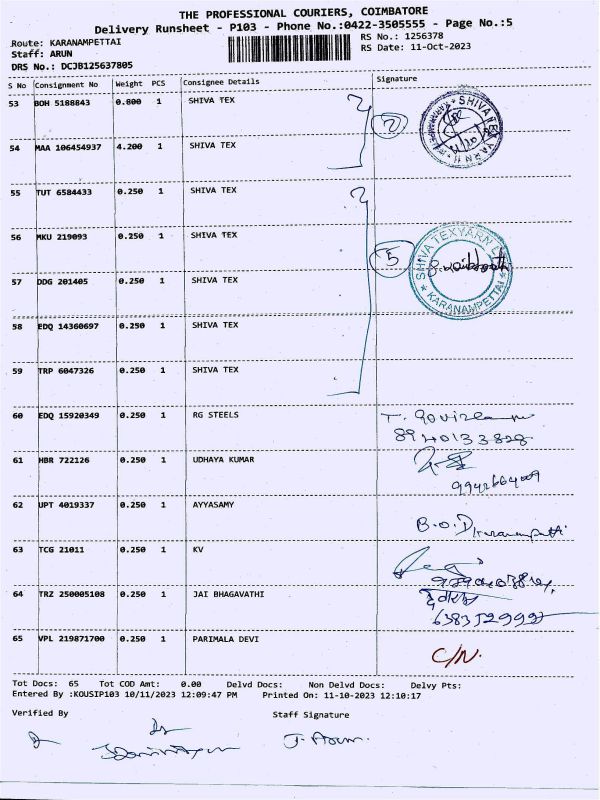 THE PROFESSIONAL COURIERS, COIMBATORE
Delivery Runsheet - P103 - Phone No.:0422-3505555 - Page No.:5
Route: KARANAMPETTAI RS No.: 1256378
Staff: ARUN RS Date: 11-Oct-2023
DRS No.: DCJB125637805
S No Consignment No Weight PCS Consignee Details Signature
53 BOH 5188843 0.800 1 SHIVA TEX
2
54 MAA 106454937 4.200 1 SHIVA TEX
55 TUT 6584433 0.250 1 SHIVA TEX
56 MKU 219093 0.250 1 SHIVA TEX
5 SHIVA TEXYARN KARANAMPETTAI
57 DDG 201405 0.250 1 SHIVA TEX
58 EDQ 14360697 0.250 1 SHIVA TEX
59 TRP 6047326 0.250 1 SHIVA TEX
60 EDQ 15920349 0.250 1 RG STEELS
8940133828
61 HBR 722126 0.250 1 UDHAYA KUMAR
9942664009
62 UPT 4019337 0.250 1 AYYASAMY
B.O.
63 TCG 21011 0.250 1 KV
64 TRZ 250005108 0.250 1 JAI BHAGAVATHI
6383529992
65 VPL 219871700 0.250 1 PARIMALA DEVI
C/N.
Tot Docs: 65 Tot COD Amt: 0.00 Delvd Docs: Non Delvd Docs: Delvy Pts:
Entered By :KOUSIP103 10/11/2023 12:09:47 PM Printed On: 11-10-2023 12:10:17
Verified By Staff Signature